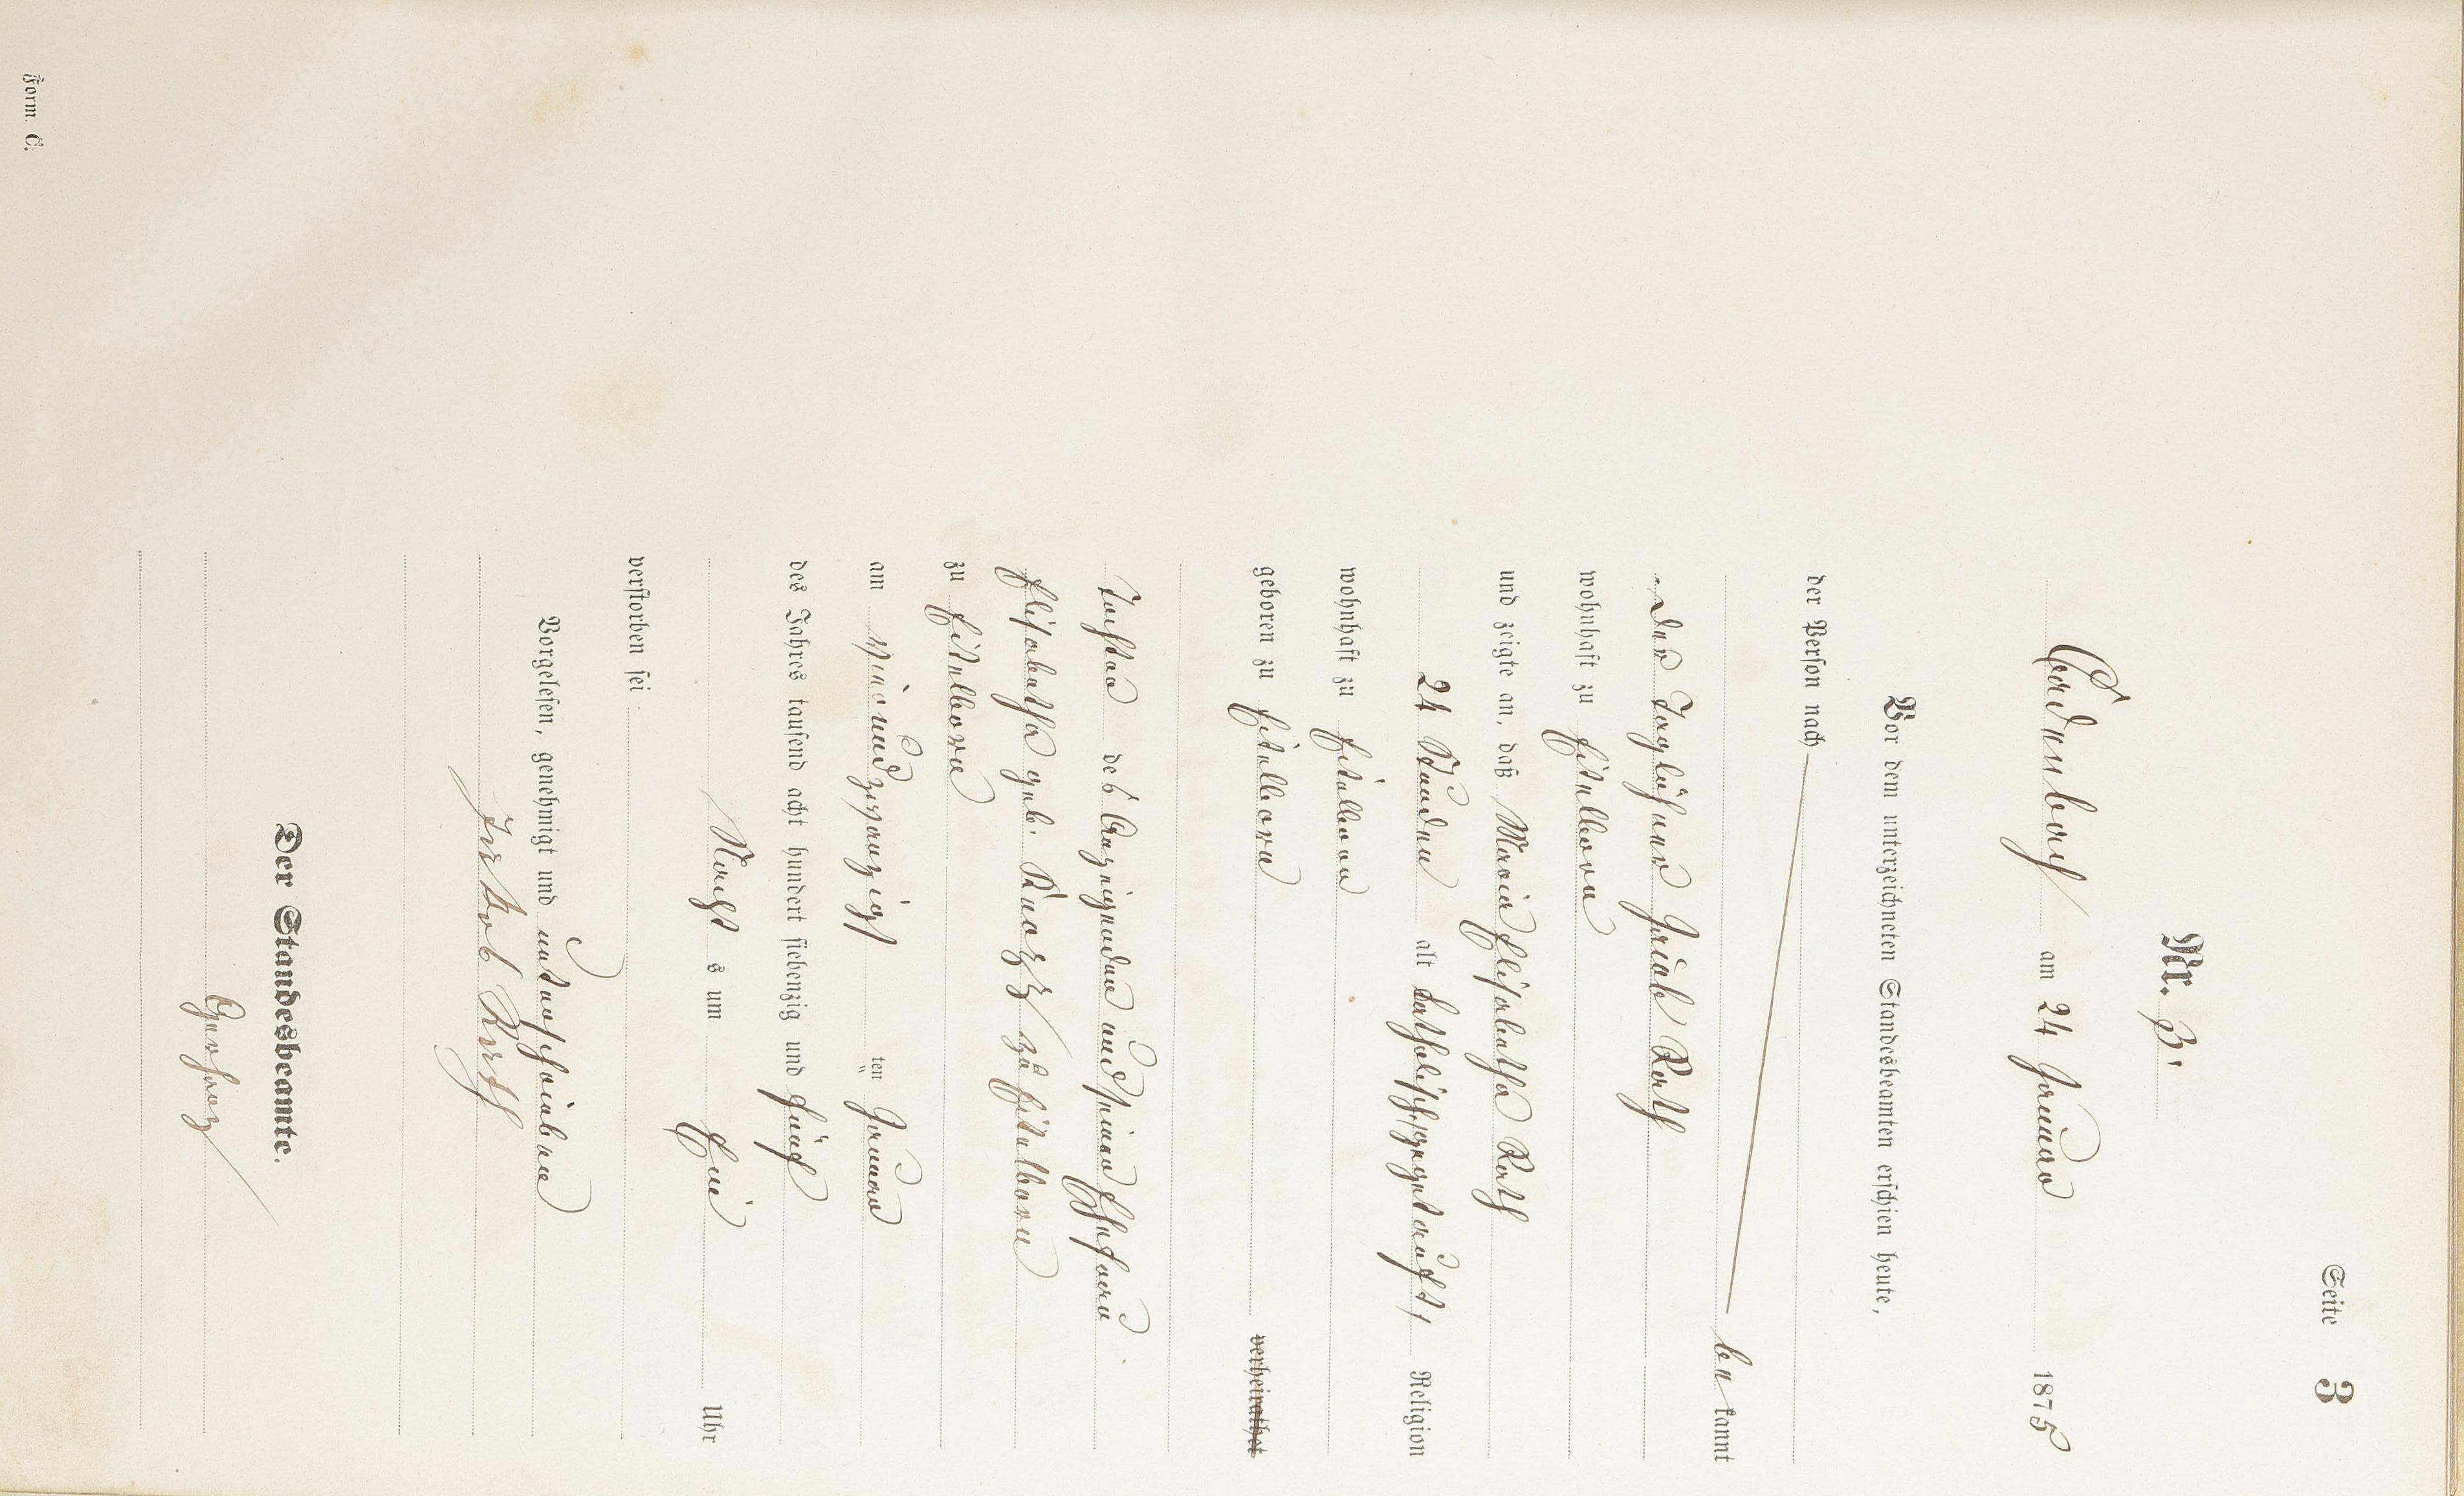 Seite 3
Nr. 3.
Cadenbach am 24 Januar 1875
Vor dem unterzeichneten Standesbeamten erschien heute,
der Person nach
be kannt
der Taglöhner Jacob Roth
wohnhaft zu Eitelborn
und zeigte an, daß Maria Elisabetha Roth
24 Stunden alt katholisch getauft, Religion
wohnhaft zu Eitelborn
geboren zu Eitelborn verheirathet
Tochter des Anzeigenden und seiner Ehefrau
Elisabetha geb. zu Eitelborn
zu Eitelborn
am vierundzwanzigsten Januar
des Jahres tausend acht hundert siebenzig und fünf
Nachts um Ein Uhr
verstorben sei.
Vorgelesen, genehmigt und unterschrieben
Jakob Roth
Der Standesbeamte.
Form. C.